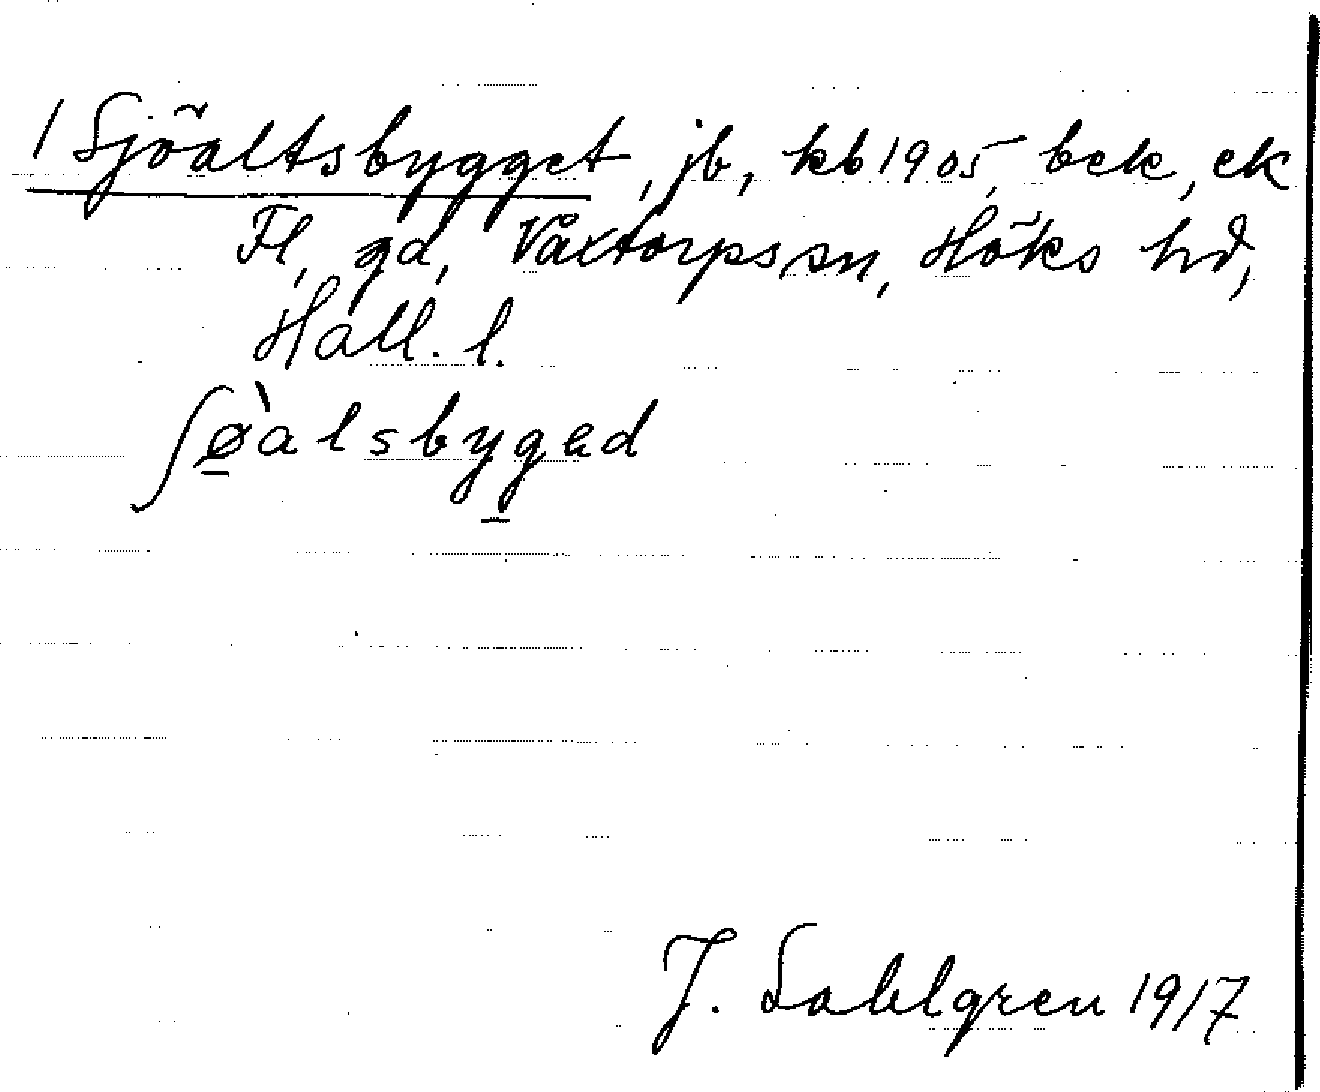 / Sjöaltsbygget, jb, kb 1905, bek, ek
Fl, gd, Våxtorps sn, Höks hd,
Hall. l.
ʃø̱̀alsbyg̱əd
J. Sahlgren 1917